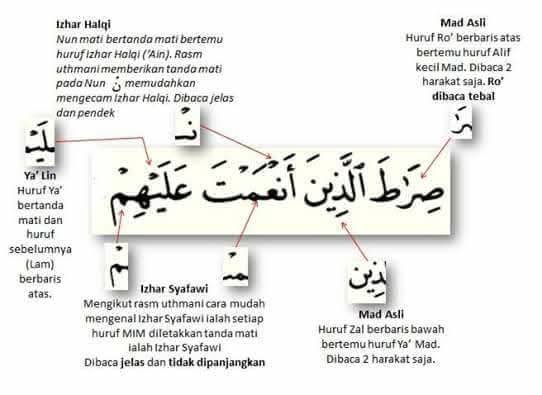 Izhar Halqi
Nun mati bertanda mati bertemu
huruf Izhar Halqi ('Ain). Rasm
uthmani memberikan tanda mati
pada Nun نْ memudahkan
mengecam Izhar Halqi. Dibaca jelas
dan pendek
Mad Asli
Huruf Ro' berbaris atas
bertemu huruf Alif
kecil Mad. Dibaca 2
harakat saja. Ro'
dibaca tebal
رَٰ
نـۡ
لَيۡـ
صِرَٰطَ ٱلَّذِينَ أَنۡعَمۡتَ عَلَيۡهِمۡ
Ya' Lin
Huruf Ya'
bertanda
mati dan
huruf
sebelumnya
(Lam)
berbaris
atas.
مۡ
مۡـ
ذِين
Izhar Syafawi
Mengikut rasm uthmani cara mudah
mengenal Izhar Syafawi ialah setiap
huruf MIM diletakkan tanda mati
ialah Izhar Syafawi
Dibaca jelas dan tidak dipanjangkan
Mad Asli
Huruf Zal berbaris bawah
bertemu huruf Ya' Mad.
Dibaca 2 harakat saja.